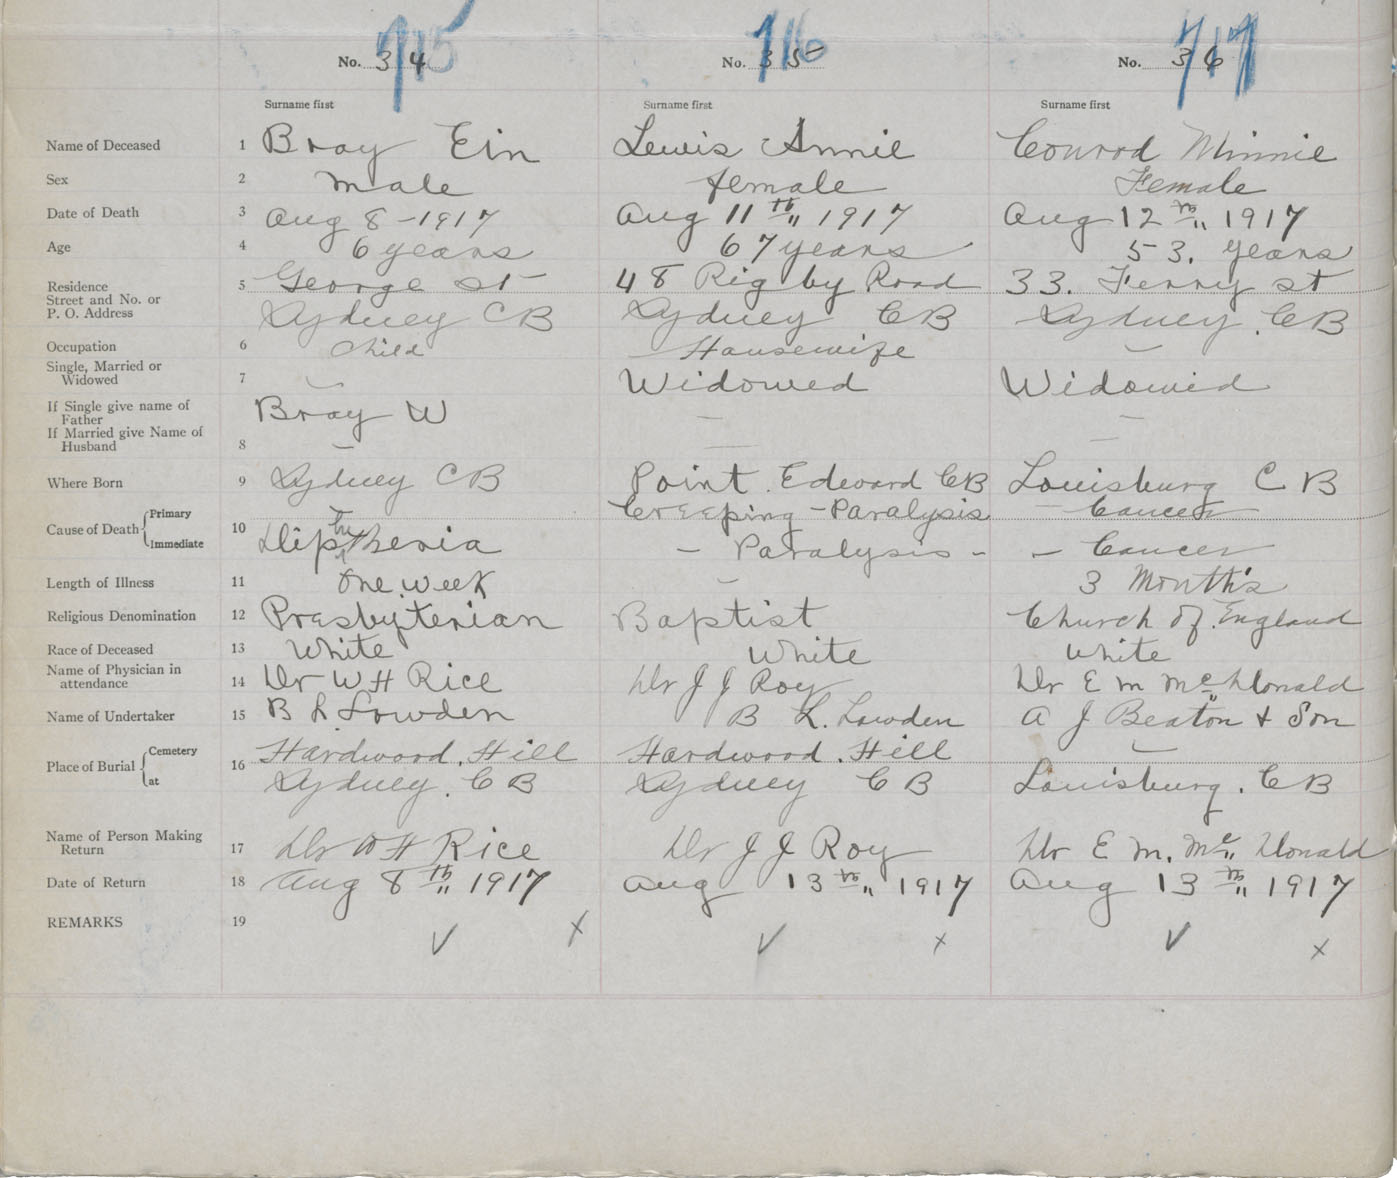 715 716 717
No. 34 No. 35 No. 36
Surname first Surname first Surname first
Name of Deceased 1 Bray Ein Lewis Annie Conrod Minnie
Sex 2 male female Female
Date of Death 3 Aug 8-1917 Aug 11th 1917 Aug 12th 1917
Age 4 6 years 67 years 53. years
Residence
Street and No. or
P. O. Address
5 George St 48 Rigby Road 33. Ferry st
Sydney CB Sydney CB Sydney. CB
Occupation 6 Child Housewife —
Single, Married or
Widowed
7 — Widowed Widowid
If Single give name of
Father
Bray W — —
If Married give Name of
Husband
8 — — —
Where Born 9 Sydney CB Point Edward CB Louisburg CB
Cause of Death Primary Creeping-Paralysis - Cancer
10 Immediate Diphtheria - Paralysis - - Cancer
Length of Illness 11 One week — 3 Month's
Religious Denomination 12 Presbyterian Baptist Church of England
Race of Deceased 13 White White White
Name of Physician in
attendance
14 Dr W H Rice Dr J J Roy Dr E M McDonald
Name of Undertaker 15 B L Lowden B L. Lowden A J Beaton + Son
Place of Burial Cemetery 16 Hardwood. Hill Hardwood. Hill —
at Sydney. CB Sydney CB Louisburg. CB
Name of Person Making
Return
17 Dr W H Rice Dr J J Roy Dr E M. McDonald
Date of Return 18 Aug 8th 1917 Aug 13th 1917 Aug 13th 1917
REMARKS 19 ✓ x ✓ x ✓ x